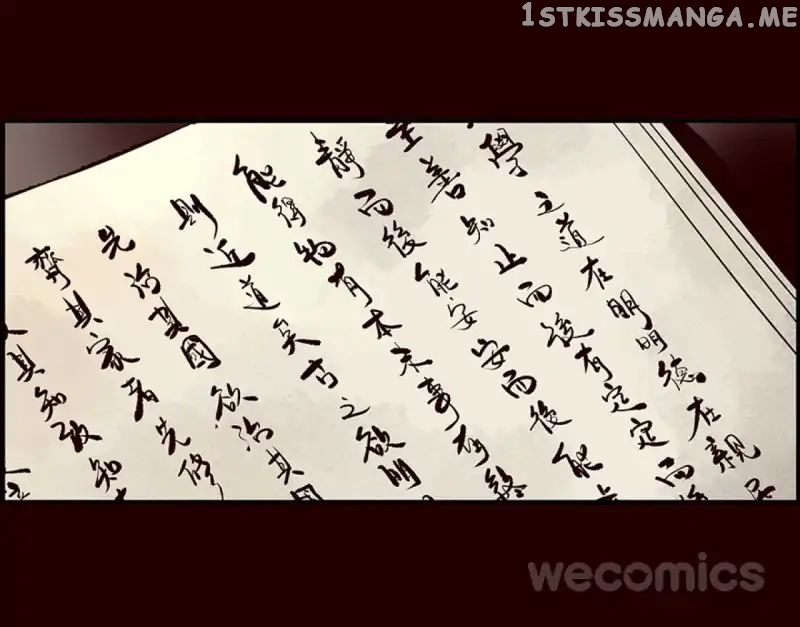 1STKISSMANGA.ME
學之道在明明德在親民
至善知止而後有定定而後
靜而後能安安而後能
能得物有本末事有終
則近道矣古之欲明
先治其國欲治其國
齊其家者先修
其知致知
wecomics